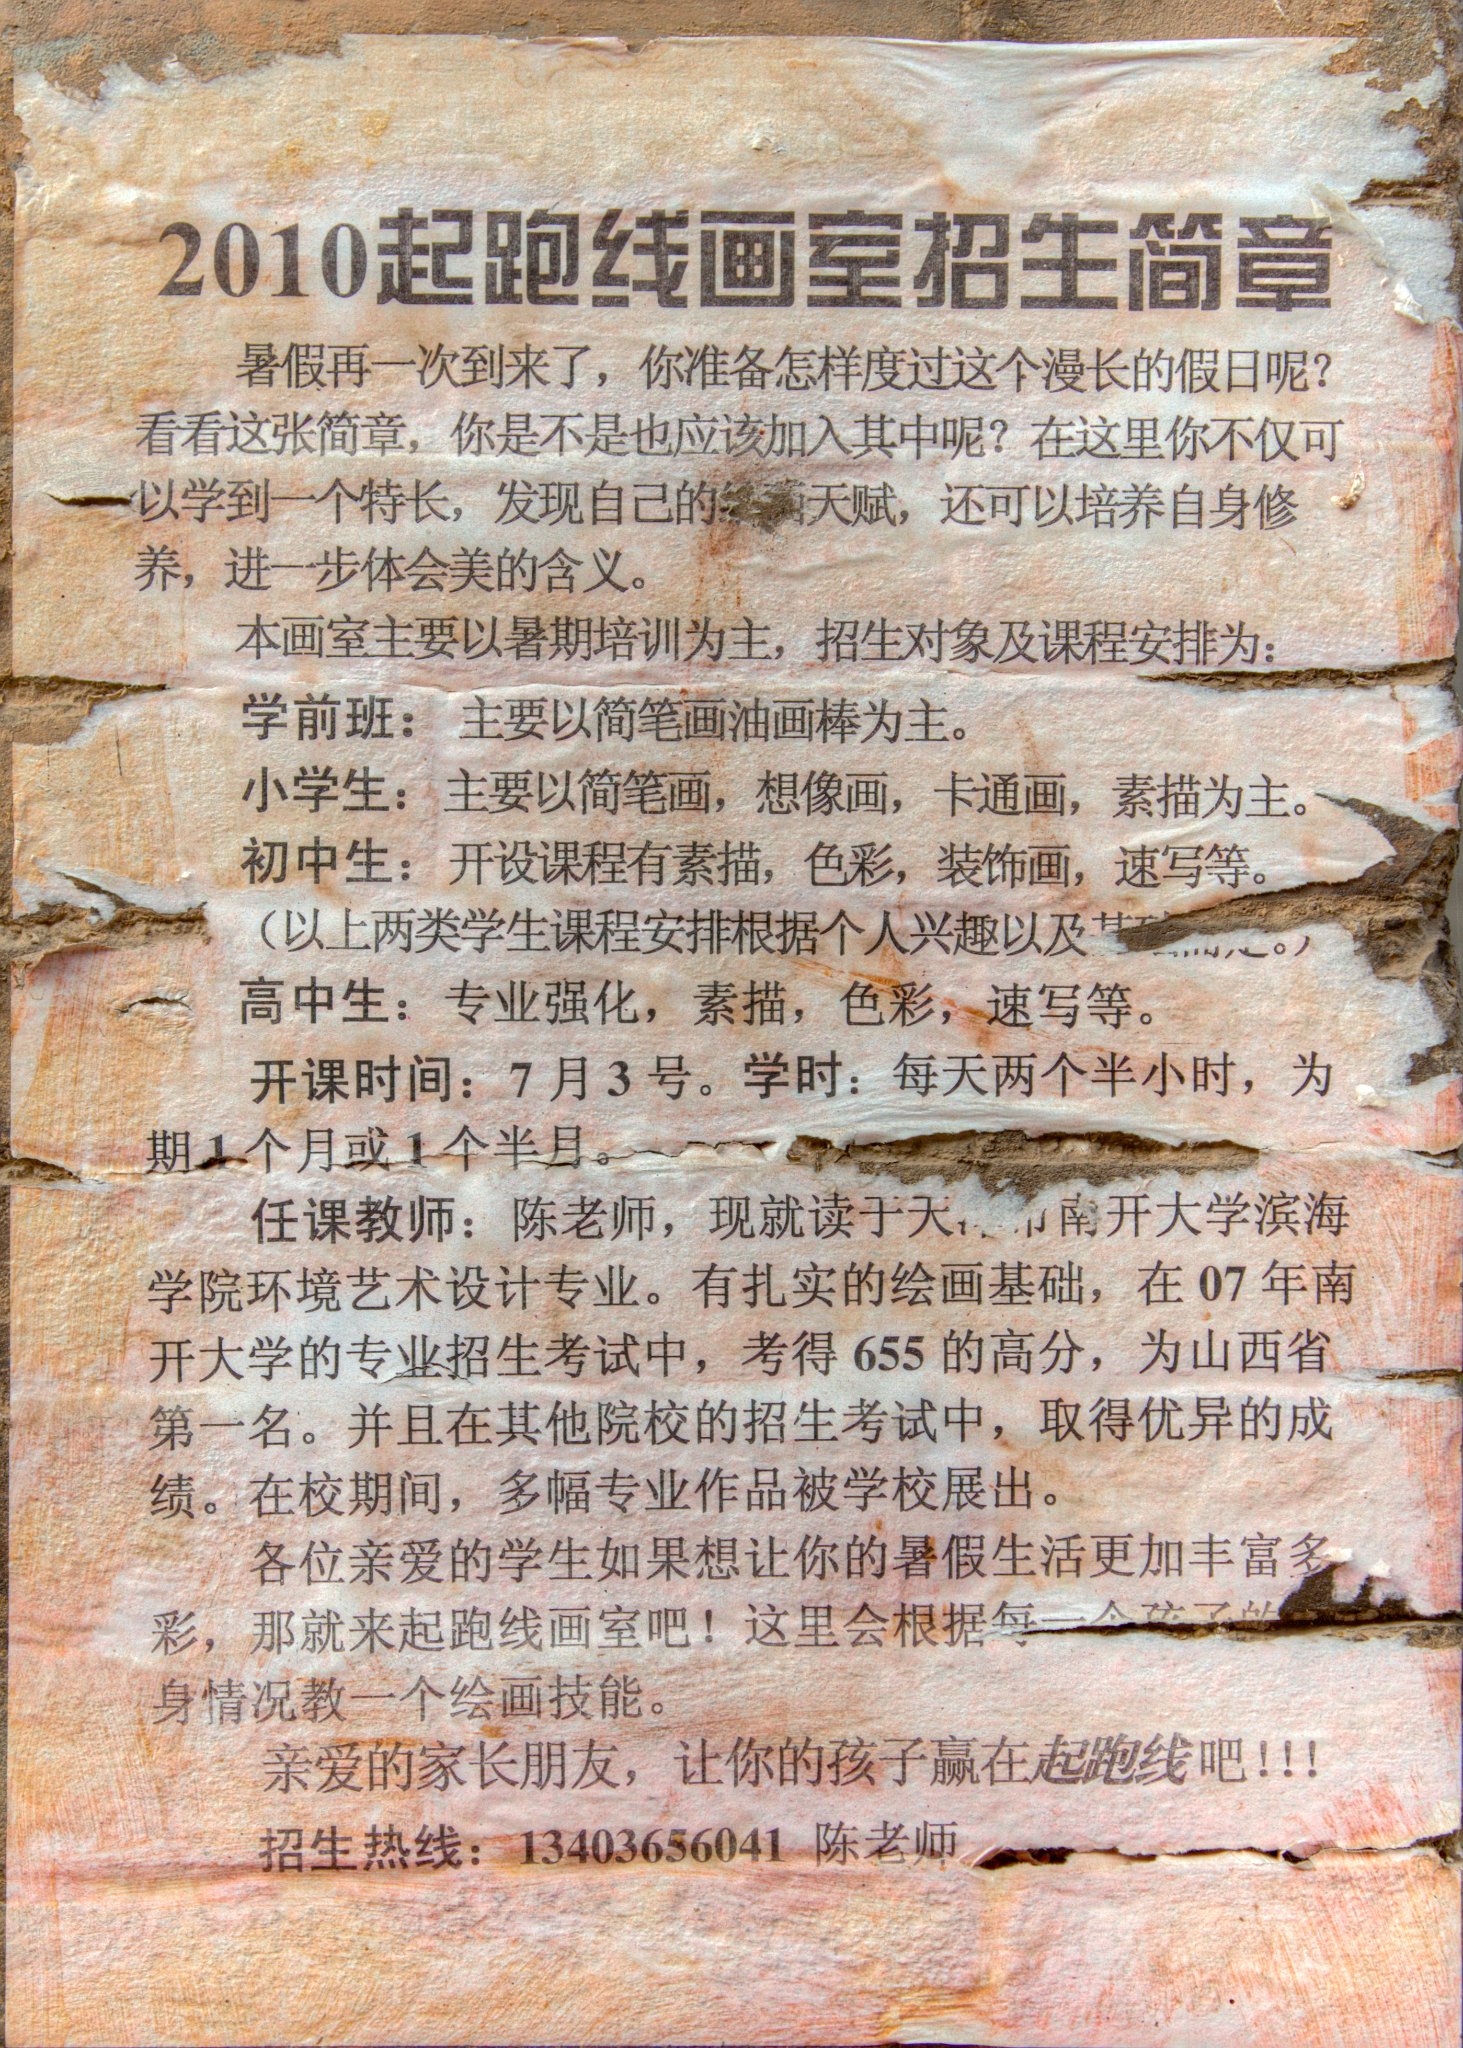 2010起跑线画室招生简章
暑假再一次到来了，你准备怎样度过这个漫长的假日呢？
看看这张简章，你是不是也应该加入其中呢？在这里你不仅可
以学到一个特长，发现自己的天赋，还可以培养自身修
养，进一步体会美的含义。
本画室主要以暑期培训为主，招生对象及课程安排为：
学前班： 主要以简笔画油画棒为主。
小学生：主要以简笔画，想像画，卡通画，素描为主。
初中生：开设课程有素描，色彩，装饰画，速写等。
（以上两类学生课程安排根据个人兴趣以及。）
高中生：专业强化，素描，色彩，速写等。
开课时间：7月3号。学时：每天两个半小时，为
期1个月或1个半月。
任课教师：陈老师，现就读于天南开大学滨海
学院环境艺术设计专业。有扎实的绘画基础，在07年南
开大学的专业招生考试中，考得655的高分，为山西省
第一名。并且在其他院校的招生考试中，取得优异的成
绩。在校期间，多幅专业作品被学校展出。
各位亲爱的学生如果想让你的暑假生活更加丰富多
彩，那就来起跑线画室吧！这里会根据每一个孩子的
身情况教一个绘画技能。
亲爱的家长朋友，让你的孩子赢在起跑线吧！！！
招生热线：13403656041 陈老师